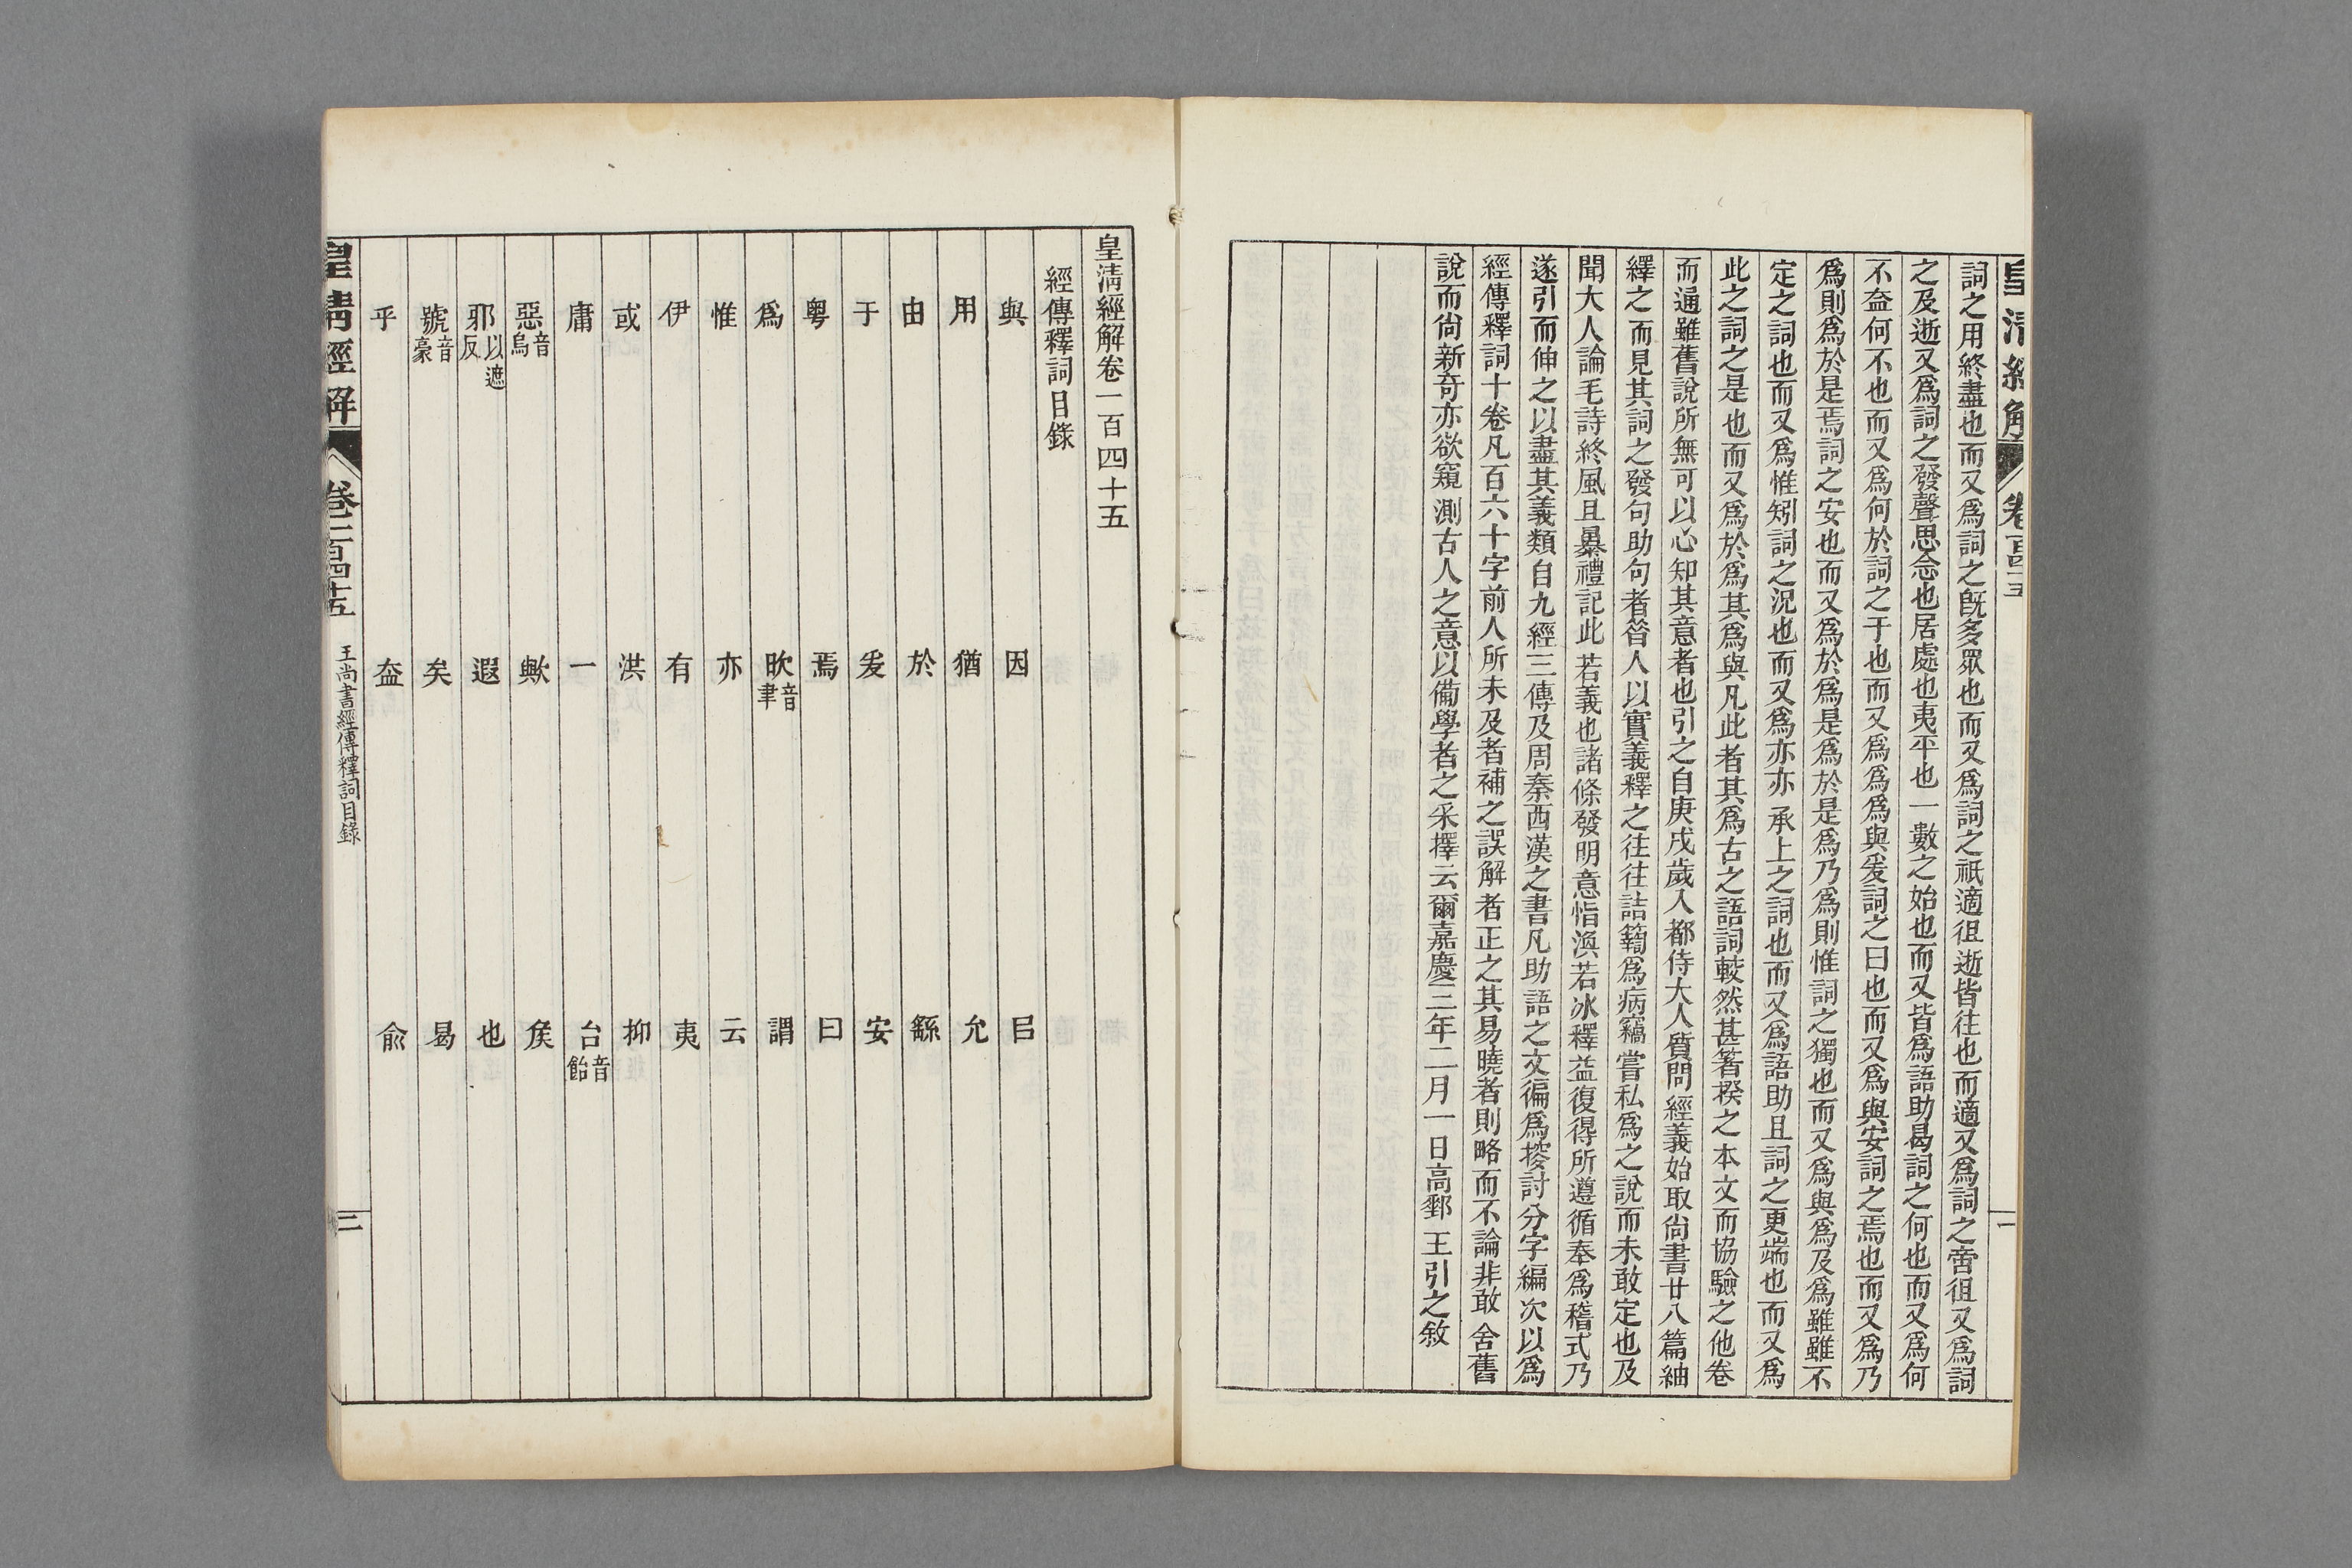 皇清經解
卷一百四十五
詞之用終盡也而又爲詞之旣多眾也而又爲詞之祇適徂逝皆往也而適又爲詞之啻徂又爲詞
之及逝又爲詞之發聲思念也居處也夷平也一數之始也而又皆爲語助曷詞之何也而又爲何
不盇何不也而又爲何於詞之于也而又爲爲爲與爰詞之曰也而又爲與安詞之焉也而又爲乃
爲則爲於是焉詞之安也而又爲於爲是爲於是爲乃爲則惟詞之獨也而又爲與爲及爲雖雖不
定之詞也而又爲惟矧詞之況也而又爲亦亦承上之詞也而又爲語助且詞之更端也而又爲
此之詞之是也而又爲於爲其爲與凡此者其爲古之語詞較然甚箸揆之本文而協驗之他卷
而通雖舊說所無可以心知其意者也引之自庚戌歲入都侍大人質問經義始取尙書廿八篇紬
繹之而見其詞之發句助句者昝人以實義釋之往往詰𥷚爲病竊嘗私爲之說而未敢定也及
聞大人論毛詩終風且暴禮記此若義也諸條發明意恉渙若冰釋益復得所遵循奉爲稽式乃
遂引而伸之以盡其義類自九經三傳及周秦西漢之書凡助語之文徧爲搜討分字編次以爲
經傳釋詞十卷凡百六十字前人所未及者補之誤解者正之其易曉者則略而不論非敢舍舊
說而尙新奇亦欲窺測古人之意以備學者之采擇云爾嘉慶三年二月一日高郵王引之敘
一
皇淸經解卷一百四十五
經傳釋詞目錄
與　因　㠯
用　猶　允
由　於　繇
于　爰　安
粤　焉　曰
爲　欥音聿　謂
惟　亦　云
伊　有　夷
或　洪　抑
庸　一　台音飴
惡音烏　歟　矦
邪以遮反　遐　也
號音豪　矣　曷
乎　盇　兪
皇淸經解
卷一百四十五
王尙書經傳釋詞目錄
三